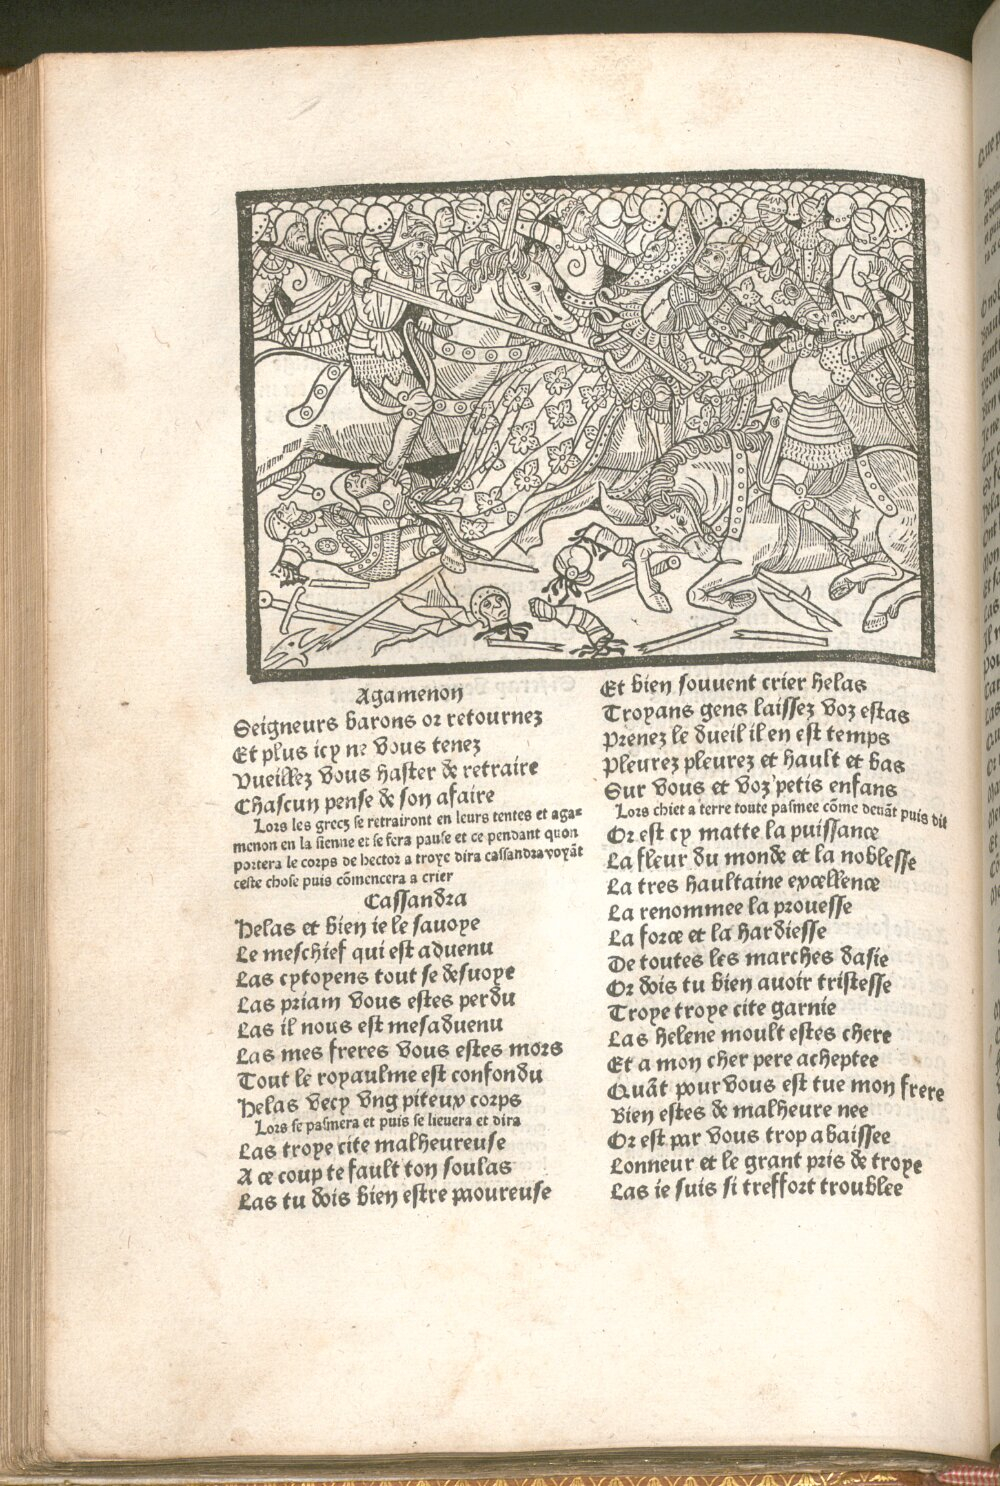 Agamenon
Seigneurs barons or retournez
Et plus icy ne vous tenez
Vueillez vous haster de retraire
Chascun pense de son afaire
Lors les grecz se retrairont en leurs tentes et aga-
menon en la sienne et se fera pause et ce pendant quon
portera le corps de hector a troye dira cassandra voyāt
ceste chose puis cōmencera a crier
Cassandra
Helas et bien ie le sauoye
Le meschief qui est aduenu
Las cytoyens tout se desuoye
Las priam vous estes perdu
Las il nous est mesaduenu
Las mes freres vous estes mors
Tout le royaulme est confondu
Helas vecy vng piteux corps
Lors se pasmera et puis se lieuera et dira
Las troye cite malheureuse
A ce coup te fault ton soulas
Las tu dois bien estre paoureuse
Et bien souuent crier helas
Troyans gens laissez voz estas
Prenez le dueil il en est temps
Pleurez pleurez et hault et bas
Sur vous et voz petis enfans
Lors chiet a terre toute pasmee cōme deuāt puis dit
Or est cy matte la puissance
La fleur du monde et la noblesse
La tres haultaine excellence
La renommee la prouesse
La force et la hardiesse
De toutes les marches dasie
Or dois tu bien auoir tristesse
Troye troye cite garnie
Las helene moult estes chere
Et a mon cher pere acheptee
Quāt pour vous est tue mon frere
Bien estes de malheure nee
Or est par vous trop abaissee
Lonneur et le grant pris de troye
Las ie suis si treffort troublee